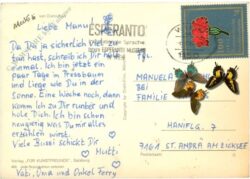 Liebe Manu
Da Du ja sicherlich viel zu
tun hast, schreib ich Dir
einmal. Ich bin jetzt ein
paar Tage in Pressbaum
und liege wie Du in der
Sonne. Eine Woche noch, dann
komm ich zu Dir runter und
hole Dich. Ich bin schon
neugierig was Du mir alles
erzählen wirst.
Viele Bussi schickt Dir
Mutti
Oma und Onkel Ferry
ESPERANTO
ESPERANTO MUSEUM
MANUELA
BEI
FAMILIE
HANIFLG. 7
ST. ANDRÄ AM ZICKSEE